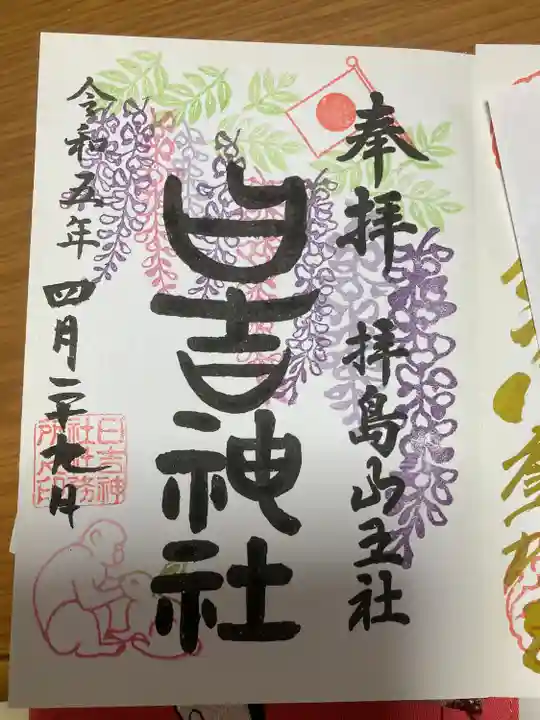 奉拝 拝島山王社
日吉神社
令和五年 四月二十九日
日吉神
社社務
所之印